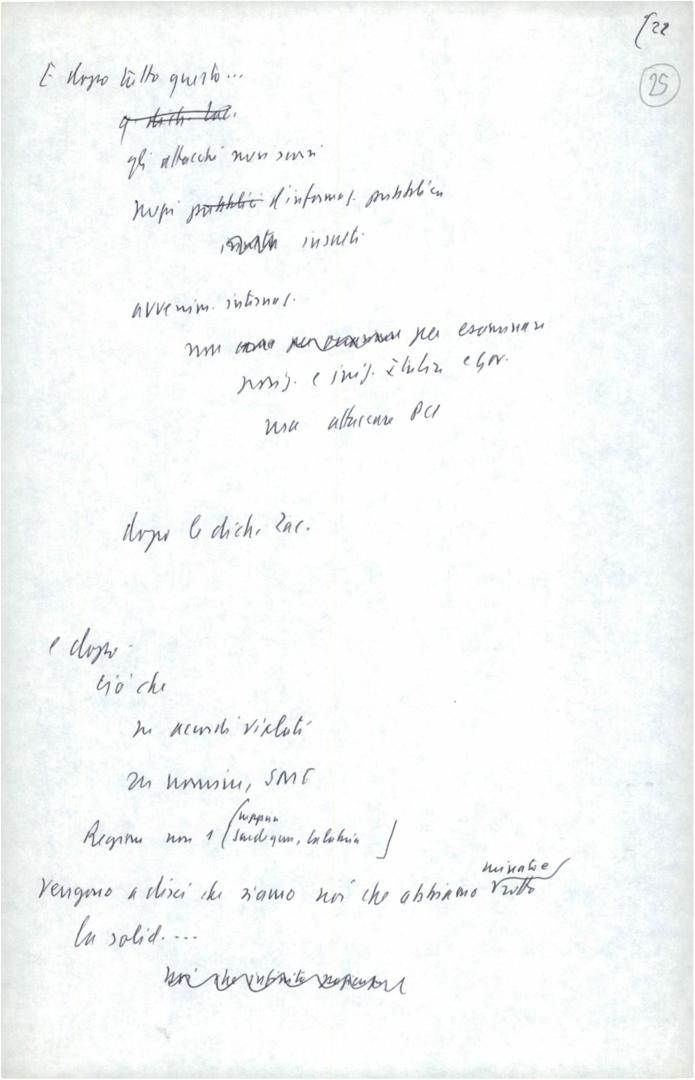 [22
25
E dopo tutto questo...
q. dich. Zac.
gli attacchi
d'informaz. pubblica
insulti
avvenim. internaz.
non per esaminare
posiz. e iniz. Italia e Gov.
ma attaccare PCI
dopo le dich. Zac.
e dopo
ciò che
su accordi violati
su nomine, SME
Regione non 1 (neppure
Sardegna, Calabria)
minate
Vengono a dirci che siamo noi che abbiamo rotto
la solid. ...